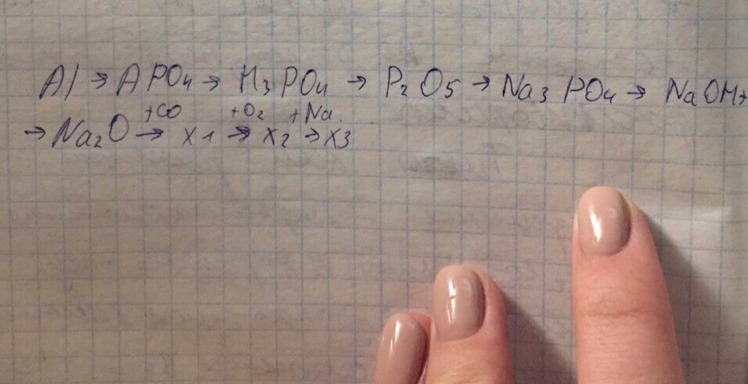 Al → APO4 → H3PO4 → P2O5 → Na3PO4 → NaOH→
→ Na2O →(+CO) x1 →(+O2) x2 →(+Na) x3